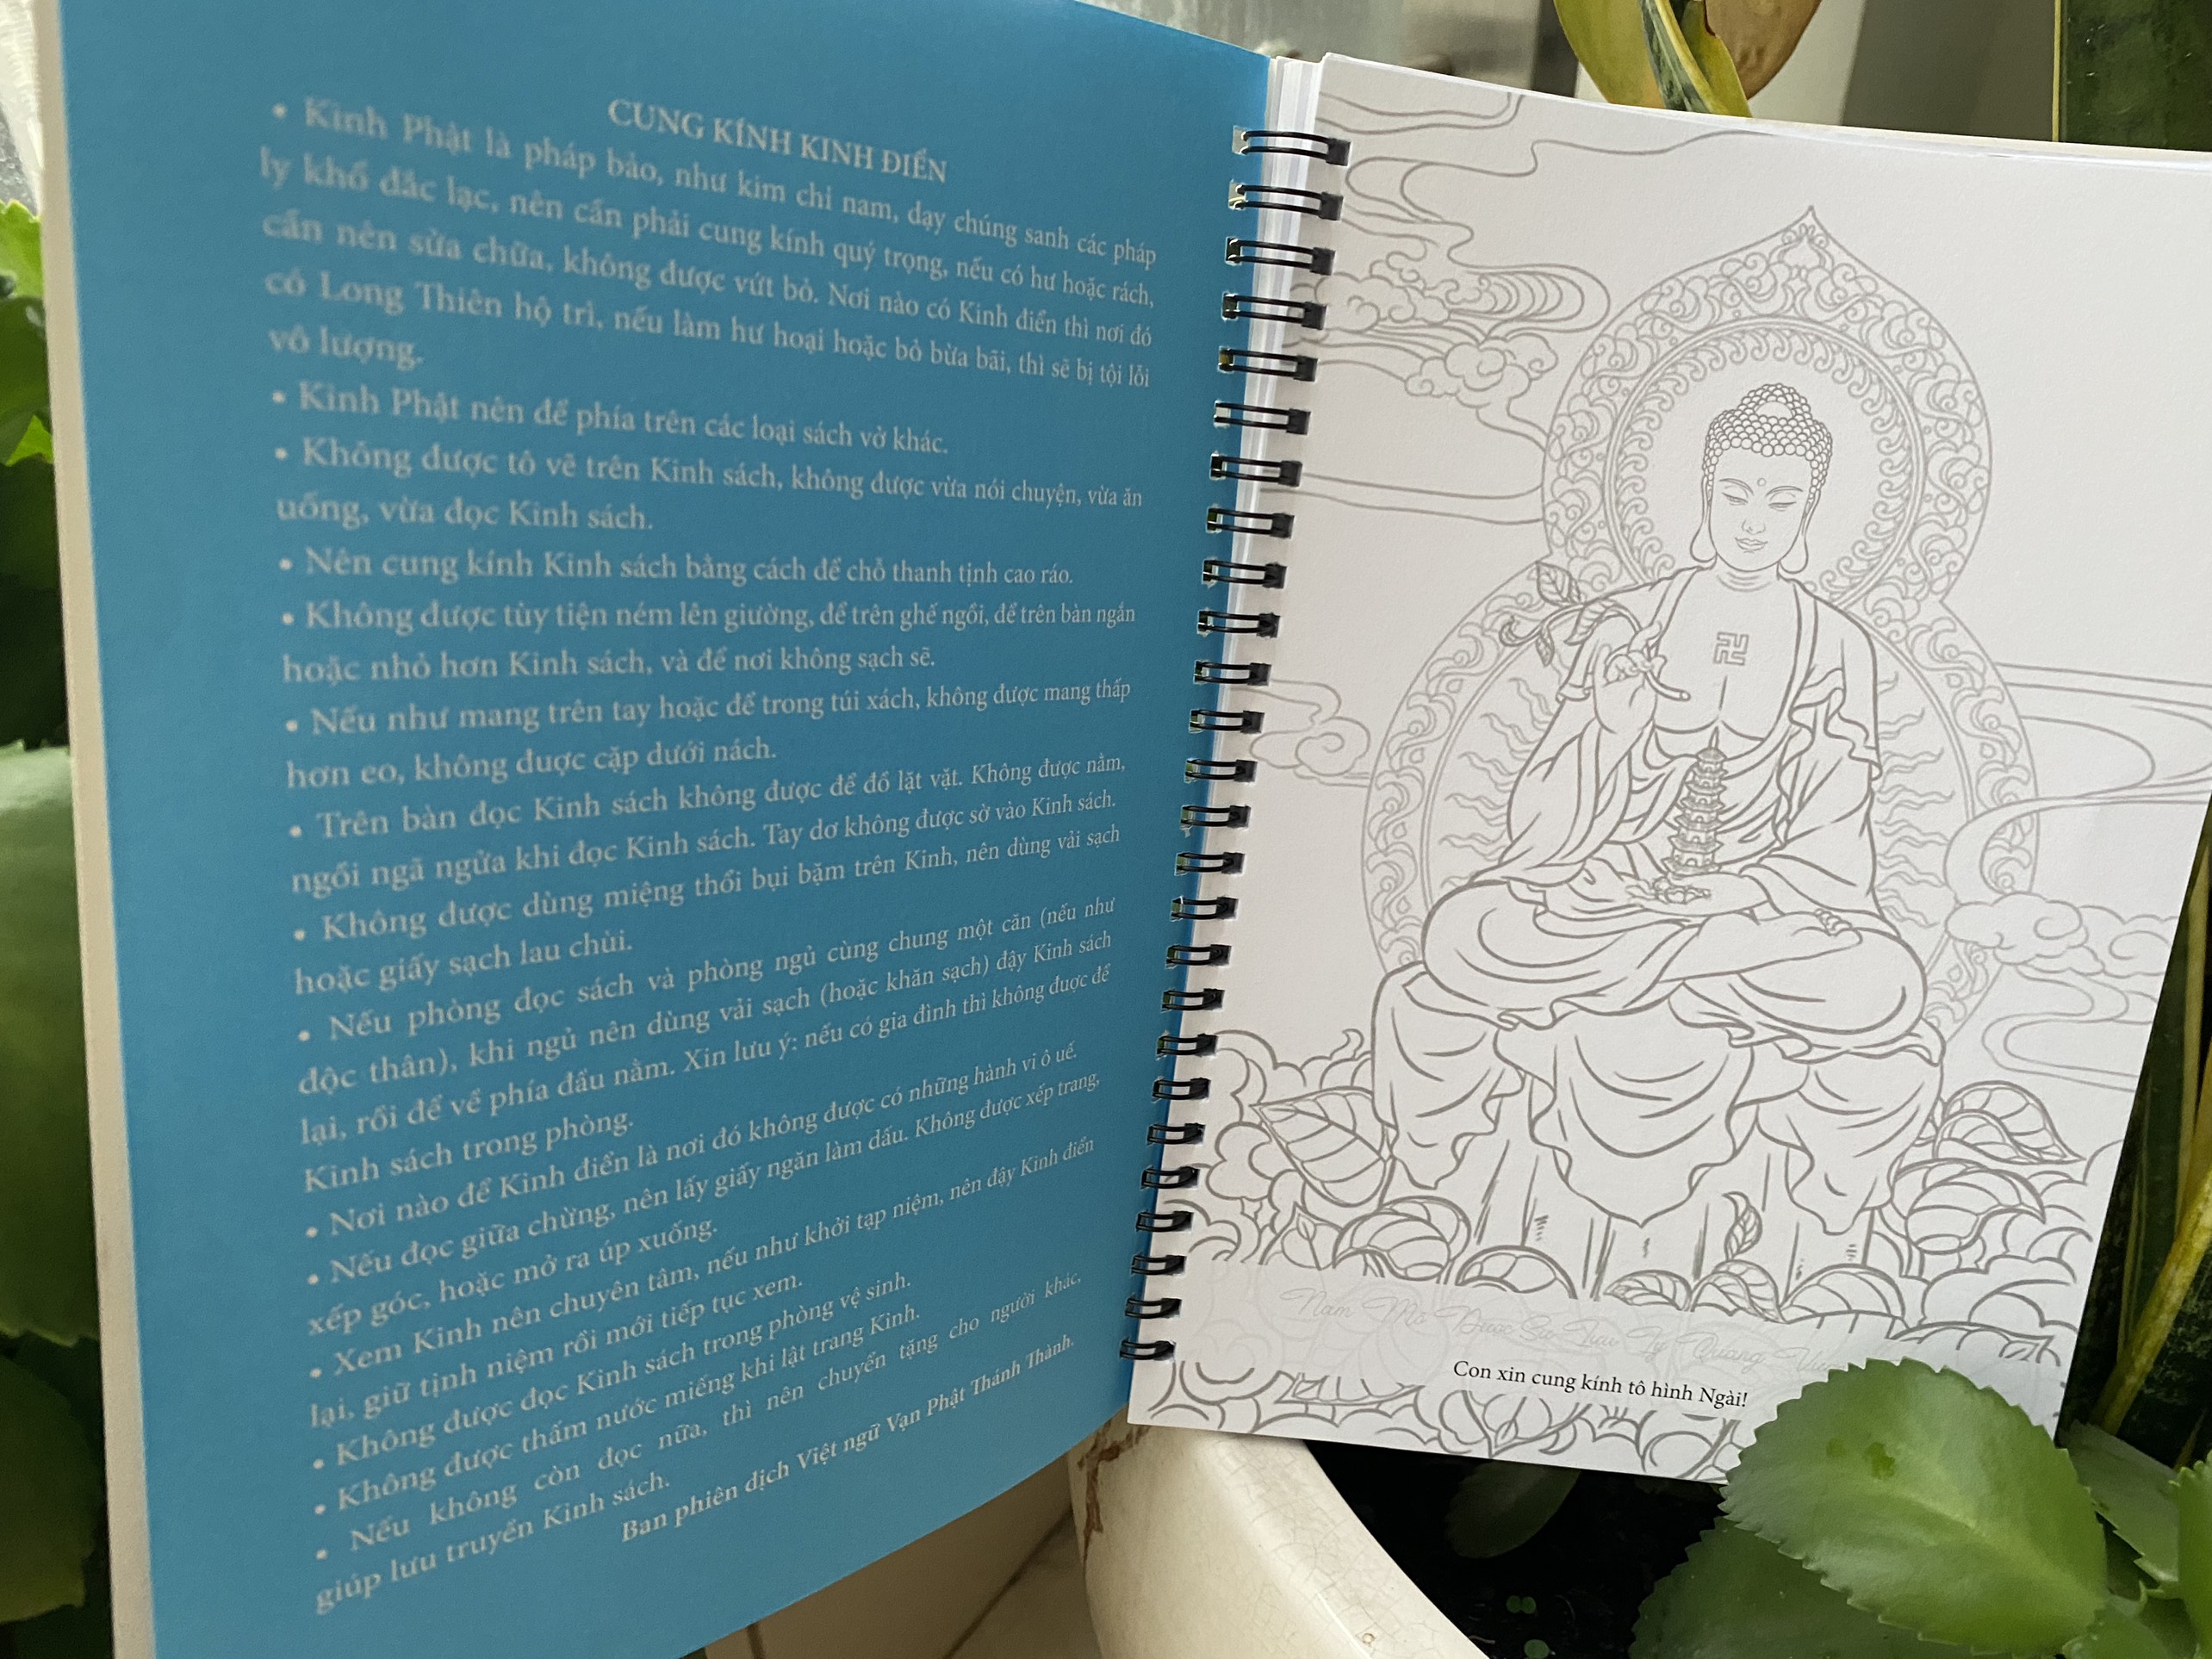 CUNG KÍNH KINH ĐIỂN
• Kinh Phật là pháp bảo, như kim chi nam, dạy chúng sanh các pháp
ly khổ đắc lạc, nên cần phải cung kính quý trọng, nếu có hư hoặc rách,
cần nên sửa chữa, không được vứt bỏ. Nơi nào có Kinh điển thì nơi đó
có Long Thiên hộ trì, nếu làm hư hoại hoặc bỏ bừa bãi, thì sẽ bị tội lỗi
vô lượng.
• Kinh Phật nên để phía trên các loại sách vở khác.
• Không được tô vẽ trên Kinh sách, không được vừa nói chuyện, vừa ăn
uống, vừa đọc Kinh sách.
• Nên cung kính Kinh sách bằng cách để chỗ thanh tịnh cao ráo.
• Không được tùy tiện ném lên giường, để trên ghế ngồi, để trên bàn ngắn
hoặc nhỏ hơn Kinh sách, và để nơi không sạch sẽ.
• Nếu như mang trên tay hoặc để trong túi xách, không được mang thấp
hơn eo, không đuợc cặp dưới nách.
• Trên bàn đọc Kinh sách không được để đồ lặt vặt. Không được nằm,
ngồi ngã ngửa khi đọc Kinh sách. Tay dơ không được sờ vào Kinh sách.
• Không được dùng miệng thổi bụi bặm trên Kinh, nên dùng vải sạch
hoặc giấy sạch lau chùi.
• Nếu phòng đọc sách và phòng ngủ cùng chung một căn (nếu như
độc thân), khi ngủ nên dùng vải sạch (hoặc khăn sạch) đậy Kinh sách
lại, rồi để về phía đầu nằm. Xin lưu ý: nếu có gia đình thì không đuợc để
Kinh sách trong phòng.
• Nơi nào để Kinh điển là nơi đó không được có những hành vi ô uế.
• Nếu đọc giữa chừng, nên lấy giấy ngăn làm dấu. Không được xếp trang,
xếp góc, hoặc mở ra úp xuống.
• Xem Kinh nên chuyên tâm, nếu như khởi tạp niệm, nên đậy Kinh điển
lại, giữ tịnh niệm rồi mới tiếp tục xem.
• Không được đọc Kinh sách trong phòng vệ sinh.
• Không được thấm nước miếng khi lật trang Kinh.
• Nếu không còn đọc nữa, thì nên chuyển tặng cho người khác,
giúp lưu truyền Kinh sách.
Ban phiên dịch Việt ngữ Vạn Phật Thánh Thành.
Nam Mô Dược Sư Lưu Ly Quang
Con xin cung kính tô hình Ngài!